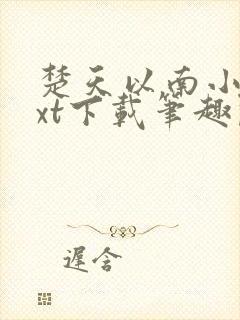 楚天以南小
xt下載筆趣
遲含